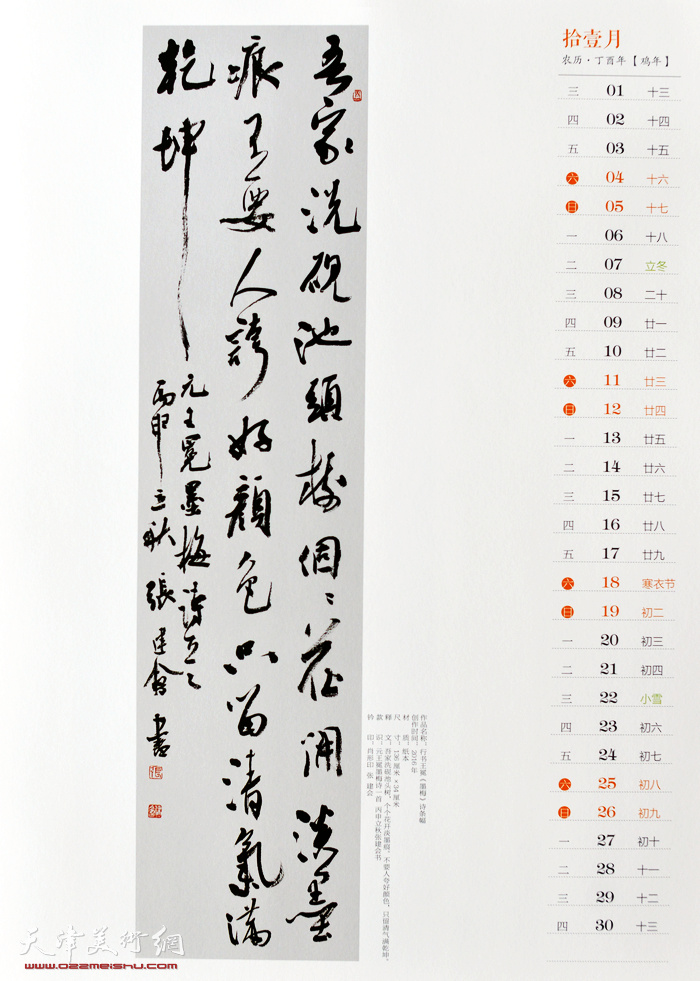 吾家洗砚池頭樹個々花開淡墨
痕不要人誇好顏色只留清氣滿
乾坤
元王冕墨梅诗一首
丙申立秋 張建會書
作品名称：行书王冕《墨梅》诗条幅
创作时间：2016年
材　质：纸本
尺　寸：136厘米×34厘米
释　文：吾家洗砚池头树，个个花开淡墨痕。不要人夸好颜色，只留清气满乾坤。
款　识：元王冕墨梅诗一首　丙申立秋张建会书
钤　印：肖形印 张 建会
拾壹月
农历·丁酉年【鸡年】
三 01 十三
四 02 十四
五 03 十五
六 04 十六
日 05 十七
一 06 十八
二 07 立冬
三 08 二十
四 09 廿一
五 10 廿二
六 11 廿三
日 12 廿四
一 13 廿五
二 14 廿六
三 15 廿七
四 16 廿八
五 17 廿九
六 18 寒衣节
日 19 初二
一 20 初三
二 21 初四
三 22 小雪
四 23 初六
五 24 初七
六 25 初八
日 26 初九
一 27 初十
二 28 十一
三 29 十二
四 30 十三
天津美術網
www.022meishu.com